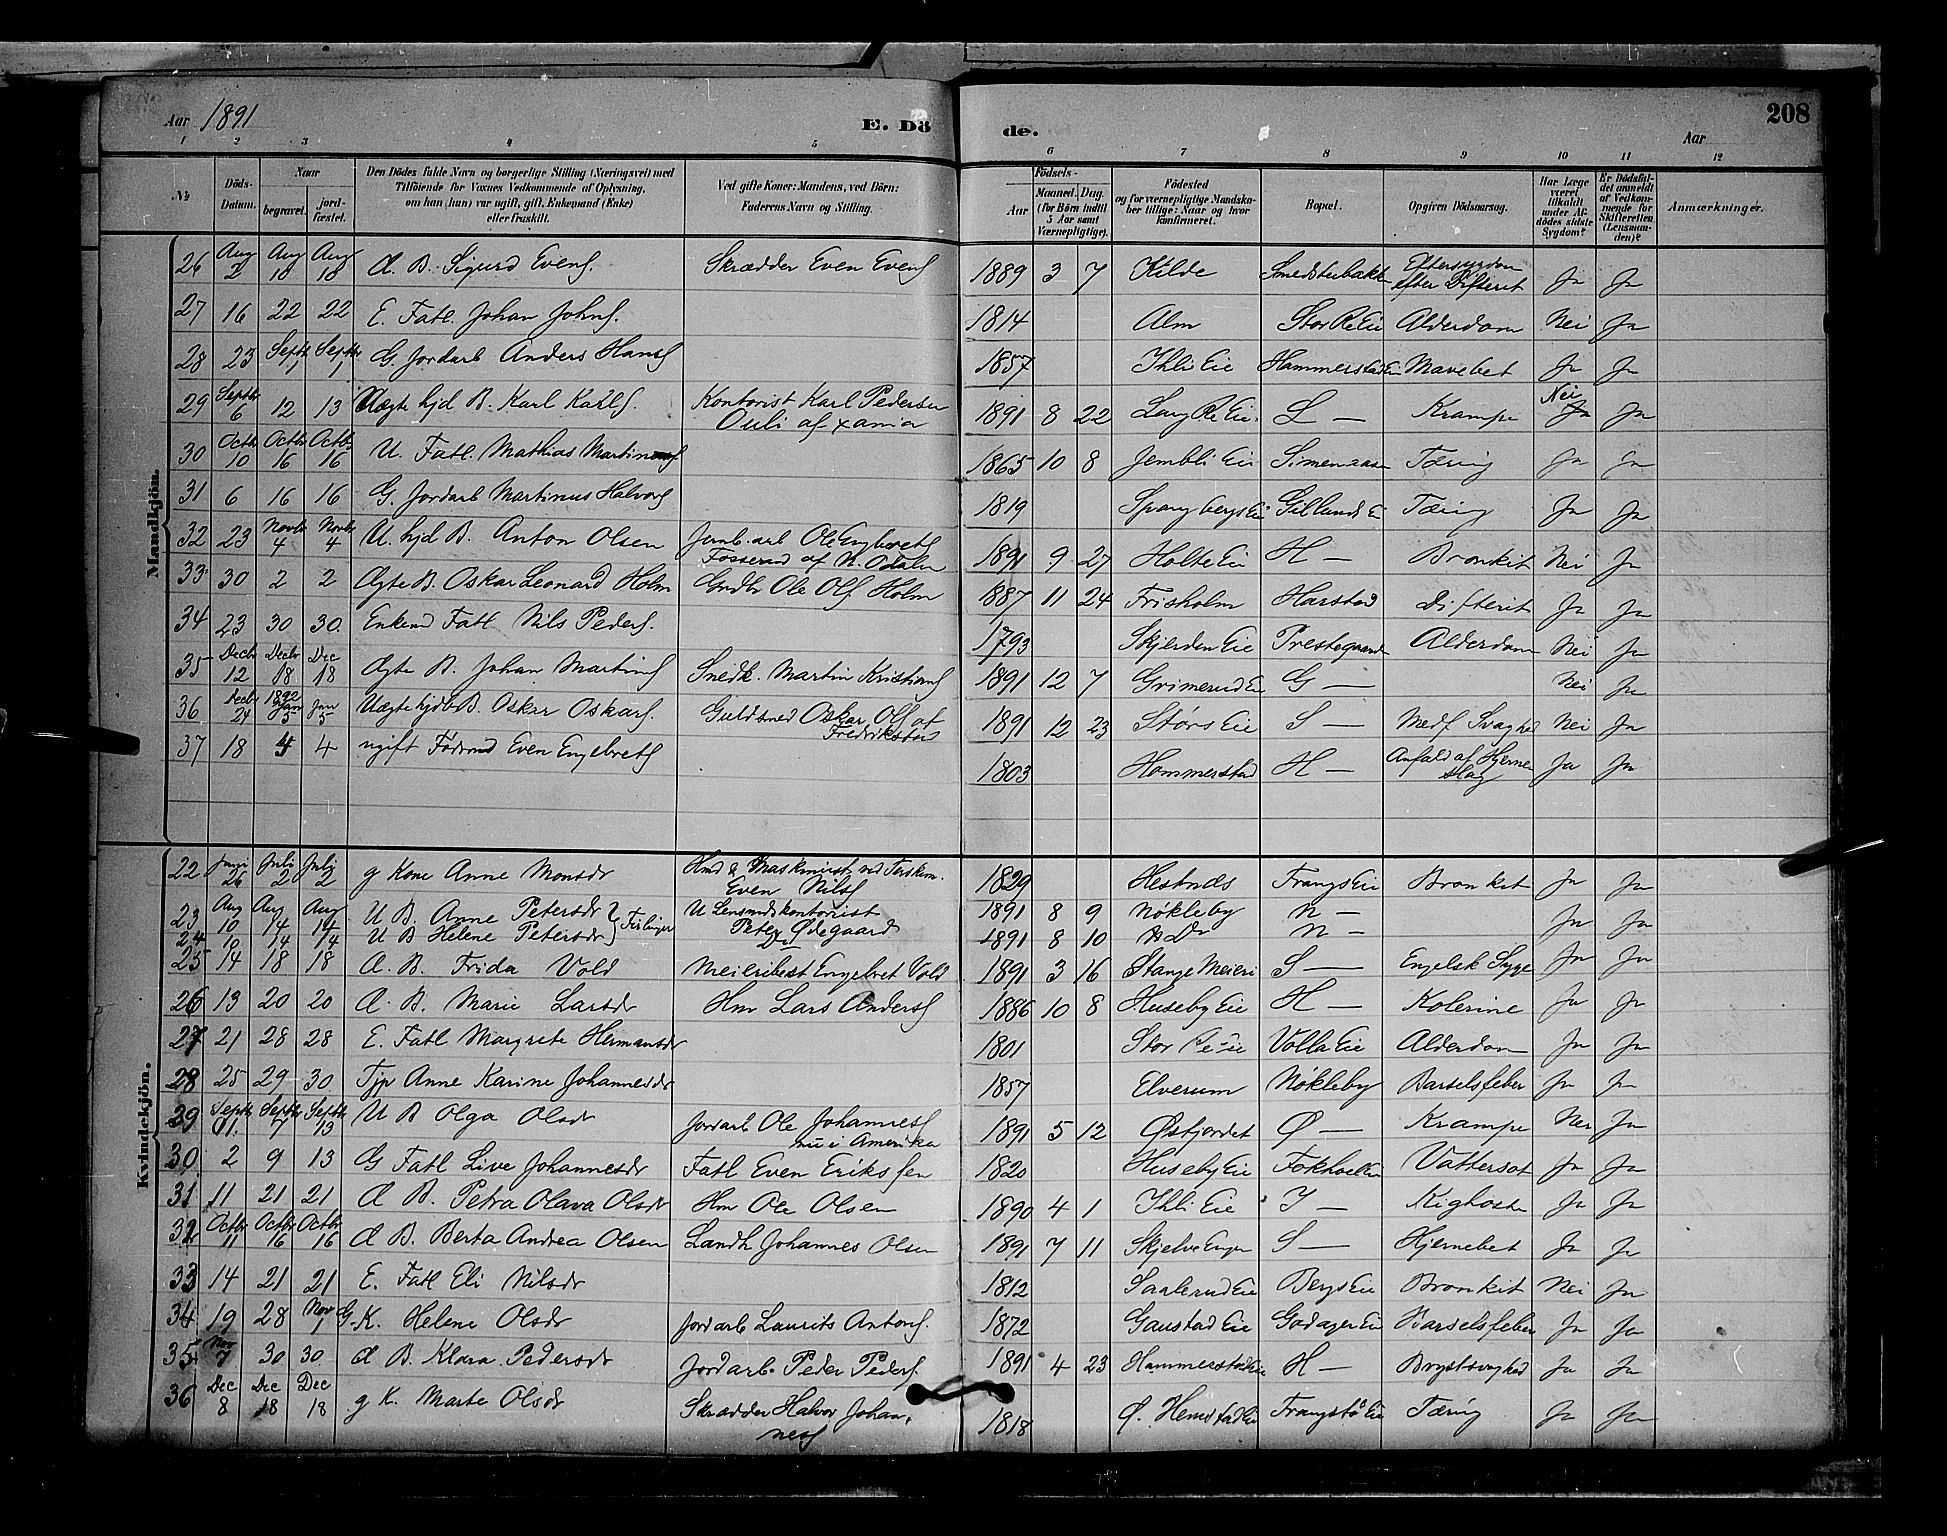 Aar 1891
E. Dö
de.
208
Aar
1 2 3 4 5 6 7 8 9 10 11 12
No.
Döds-Datum.
Naar
begravet.
jordfæstet.
Den Dödes fulde Navn og borgerlige Stilling (Næringsvei) med
Tilföiende for Voxnes Vedkommende af Oplysning,
om han (hun) var ugift, gift, Enkemand (Enke)
eller fraskilt.
Ved gifte Koner: Mandens, ved Börn:
Faderens Navn og Stilling.
Födsels-
Aar
Maaned. Dag.
(for Börn indtil
5 Aar samt
Værnepligtige).
Födested
og for værnepligtige Mandskaber tillige: Naar og hvor
konfirmeret.
Bopæl.
Opgiven Dödsaarsag.
Har Læge
været
tilkaldt
under Afdödes sidste
Sygdom?
Er Dödsfaldet anmeldt
af Vedkommende for
Skifteretten
(Lensmanden)?
Anmærkninger.
Mandkjön.
26 Aug 2 Aug 10 Aug 10 Æ. B. Sigurd Evens. Skrædder Even Evens 1889 3 7 Kilde Smedstubakk Eftersygdom efter Difterit Ja Ja
27 16 22 22 E. Fatl. Johan Johns. 1814 Alm Stor Re Eie Alderdom Nei Ja
28 23 Septr 1 Septr 1 G Jordarb Anders Hans 1857 Ihli Eie Hammerstad Ei Mavebet Ja Ja
29 Septr 6 12 13 Uægte hjd B. Karl Karls. Kontorist Karl Pedersen Ouli af Xania 1891 8 22 Lang Re Eie L — Krampe Nei Ja
30 Octb 10 Octbr 16 Octb 16 U. Fatl. Mathias Martins 1865 10 8 Jembli Eie Simenaasen Tæring Ja Ja
31 6 16 16 G. Jordarb Martinus Halvors 1819 Spangbergs Ei Gillunds Ei Tæring Ja Ja
32 23 Novbr 4 Novbr 4 U. hjd B. Anton Olsen Jernb. arb Ole Engebrets Fosserud af N. Odalen 1891 9 27 Holte Eie H — Bronkit Nei Ja
33 30 2 2 Ægte B. Oskar Leonard Holm Grdbr Ole Ols Holm 1887 11 24 Frisholm Harstad Difterit Ja Ja
34 23 30 30. Enkem Fatl Nils Peders. 1793 Skjerden Eie Prestegaard Alderdom Nei Ja
35 Decbr 12 Decbr 18 Dec 18 Ægte B. Johan Martins Snedk. Martin Kristians 1891 12 7 Grimerud Ei G — Nei Ja
36 Decbr 24 1892 Jan 5 Jan 5 Uægte hjdb B. Oskar Oskars. Guldsmed Oskar Ols af Fredrikstad 1891 12 23 Störs Eie S — Medf. Svaghed Nei Ja
37 18 4 4 ugift Föderaad Even Engebrets 1803 Hommerstad H — Anfald af Hjerneslag Ja Ja
Kvindekjön.
22 Juni 26 Juli 2 Juli 2 g Kone Anne Monsdr Hmd & Maskinist ved Terskem. Even Nils 1829 Hestnæs Frangs Eie Bronkit Ja Ja
23 Aug 10 Aug 14 Aug 14 U B. Anne Petersdr } Tvilinger U Lensmdskontorist Peter Ødegaard 1891 8 9 Nökleby N — Ja Ja
24 10 14 14 U B Helene Petersdr Do 1891 8 10 Do N —
25 14 18 18 Æ. B. Frida Vold Meieribest Engebret Vold 1891 3 16 Stange Meieri S — Engelsk Syge Ja Ja
26 13 20 20 Æ. B. Marie Larsdr Hm Lars Anders 1886 10 8 Huseby Eie H — Kolerine Ja Ja
27 21 28 28 E. Fatl Margrete Hermansdr 1801 Stor Re Eie Volla Eie Alderdom Ja Ja
28 25 29 30 Tjp Anne Karine Johannesdr 1857 Elverum Nökleby Barselsfeber Ja Ja
29 Septr 11. Septr 7 Septr 13 U B Olga Olsdr Jordarb Ole Johannes nu i Amerika 1891 5 12 Østjordet Ø — Krampe Nei Ja
30 2 9 13 G Fatl Live Johannesdr Fatl Even Eriksen 1820 Huseby Eie Fokhol Eie Vattersot Ja Ja
31 11 21 21 Æ B. Petra Olava Olsdr Hm Ole Olsen 1890 4 1 Ihli Eie I — Kighoste Ja Ja
32 Octbr 11 Octbr 16 Octbr 16 Æ B. Berta Andrea Olsen Landh Johannes Olsen 1891 7 11 Skjelve Engen S — Hjernebet Ja Ja
33 14 21 21 E. Fatl Eli Nilsdr 1812 Saalerud Eie Bergs Eie Bronkit Nei Ja
34 19 28 Nov 1 G. K. Helene Olsdr Jordarb Laurits Antons. 1872 Gaustad Eie Godager Eie Barselsfeber Ja Ja
35 Nov 7 30 30 Æ B. Klara Pedersdr Jordarb. Peder Peders. 1891 4 23 Hammerstad Eie H — Brystsvaghed Ja Ja
36 Dec 8 Dec 18 Dec 18 g K. Marte Olsdr Skrædder Halvor Johannes 1818 Ø. Hemstad Eie Frangstö Eie Tæring Ja Ja